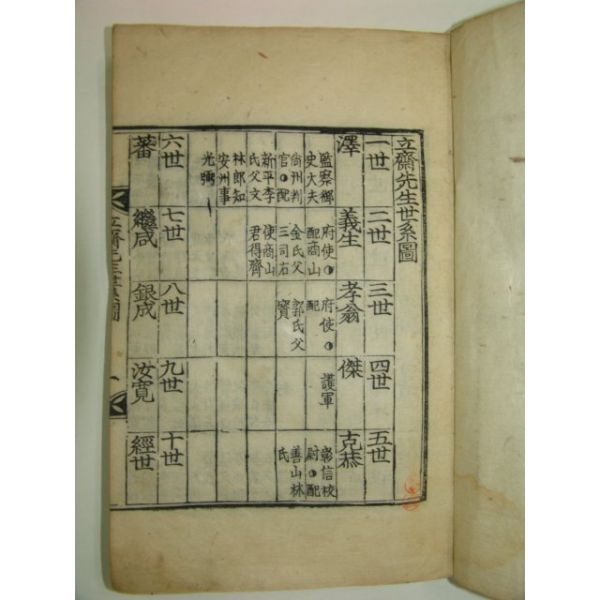 立齋先生世系圖
一世
二世
三世
四世
五世
澤
義生
孝翁
傑
克恭
監察御
史大夫
尙州判
官◑配
新平李
氏父文
林郎知
安州事
光
府使◑
配商山
金氏父
三司右
使商山
君得齊
府使◑
配
郭氏父
寶
護軍
彰信校
尉◑配
善山林
氏
六世
七世
八世
九世
十世
蕃
繼咸
銀成
汝寬
經世
立齋先生世系圖
一